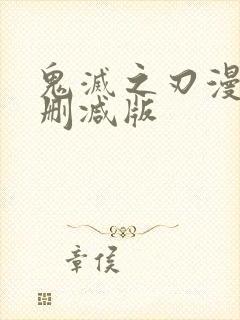 鬼滅之刃漫
删减版
章侯